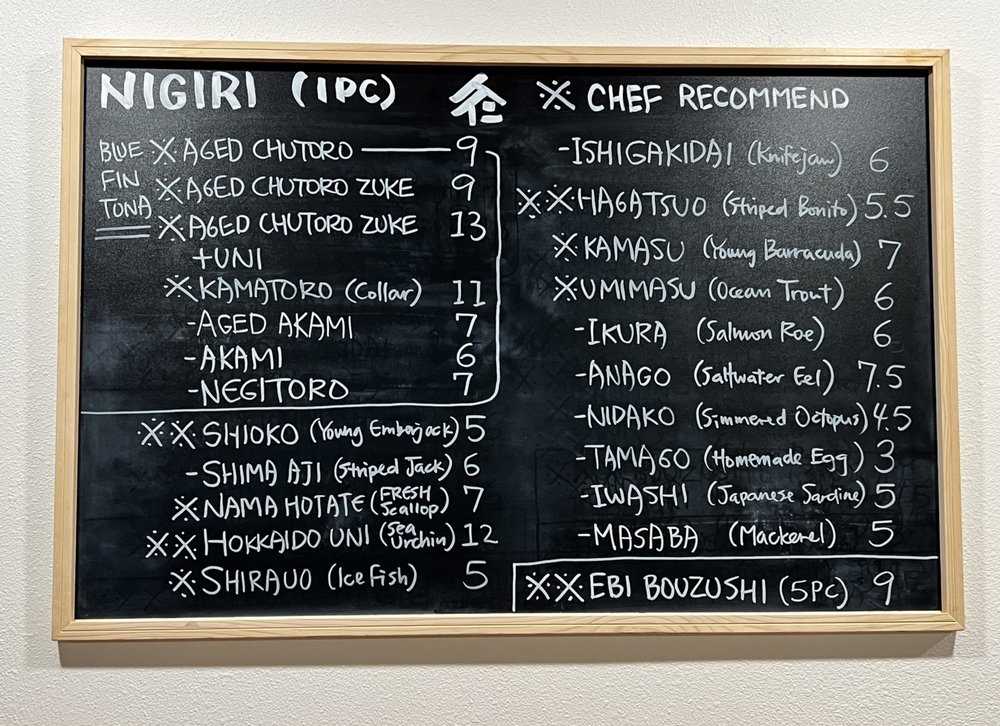 NIGIRI (1PC)
※ CHEF RECOMMEND
BLUE FIN TUNA
※AGED CHUTORO 9
※AGED CHUTORO ZUKE 9
※AGED CHUTORO ZUKE 13
+UNI
※KAMATORO (Collar) 11
-AGED AKAMI 7
-AKAMI 6
-NEGITORO 7
※※SHIOKO (Young Emberjack) 5
-SHIMA AJI (Striped Jack) 6
※NAMA HOTATE (FRESH Scallop) 7
※※HOKKAIDO UNI (Sea Urchin) 12
※SHIRAUO (Ice Fish) 5
-ISHIGAKIDAI (Knifejaw) 6
※※HAGATSUO (Striped Bonito) 5.5
※KAMASU (Young Barracuda) 7
※UMIMASU (Ocean Trout) 6
-IKURA (Salmon Roe) 6
-ANAGO (Saltwater Eel) 7.5
-NIDAKO (Simmered Octopus) 4.5
-TAMAGO (Homemade Egg) 3
-IWASHI (Japanese Sardine) 5
-MASABA (Mackerel) 5
※※EBI BOUZUSHI (5PC) 9